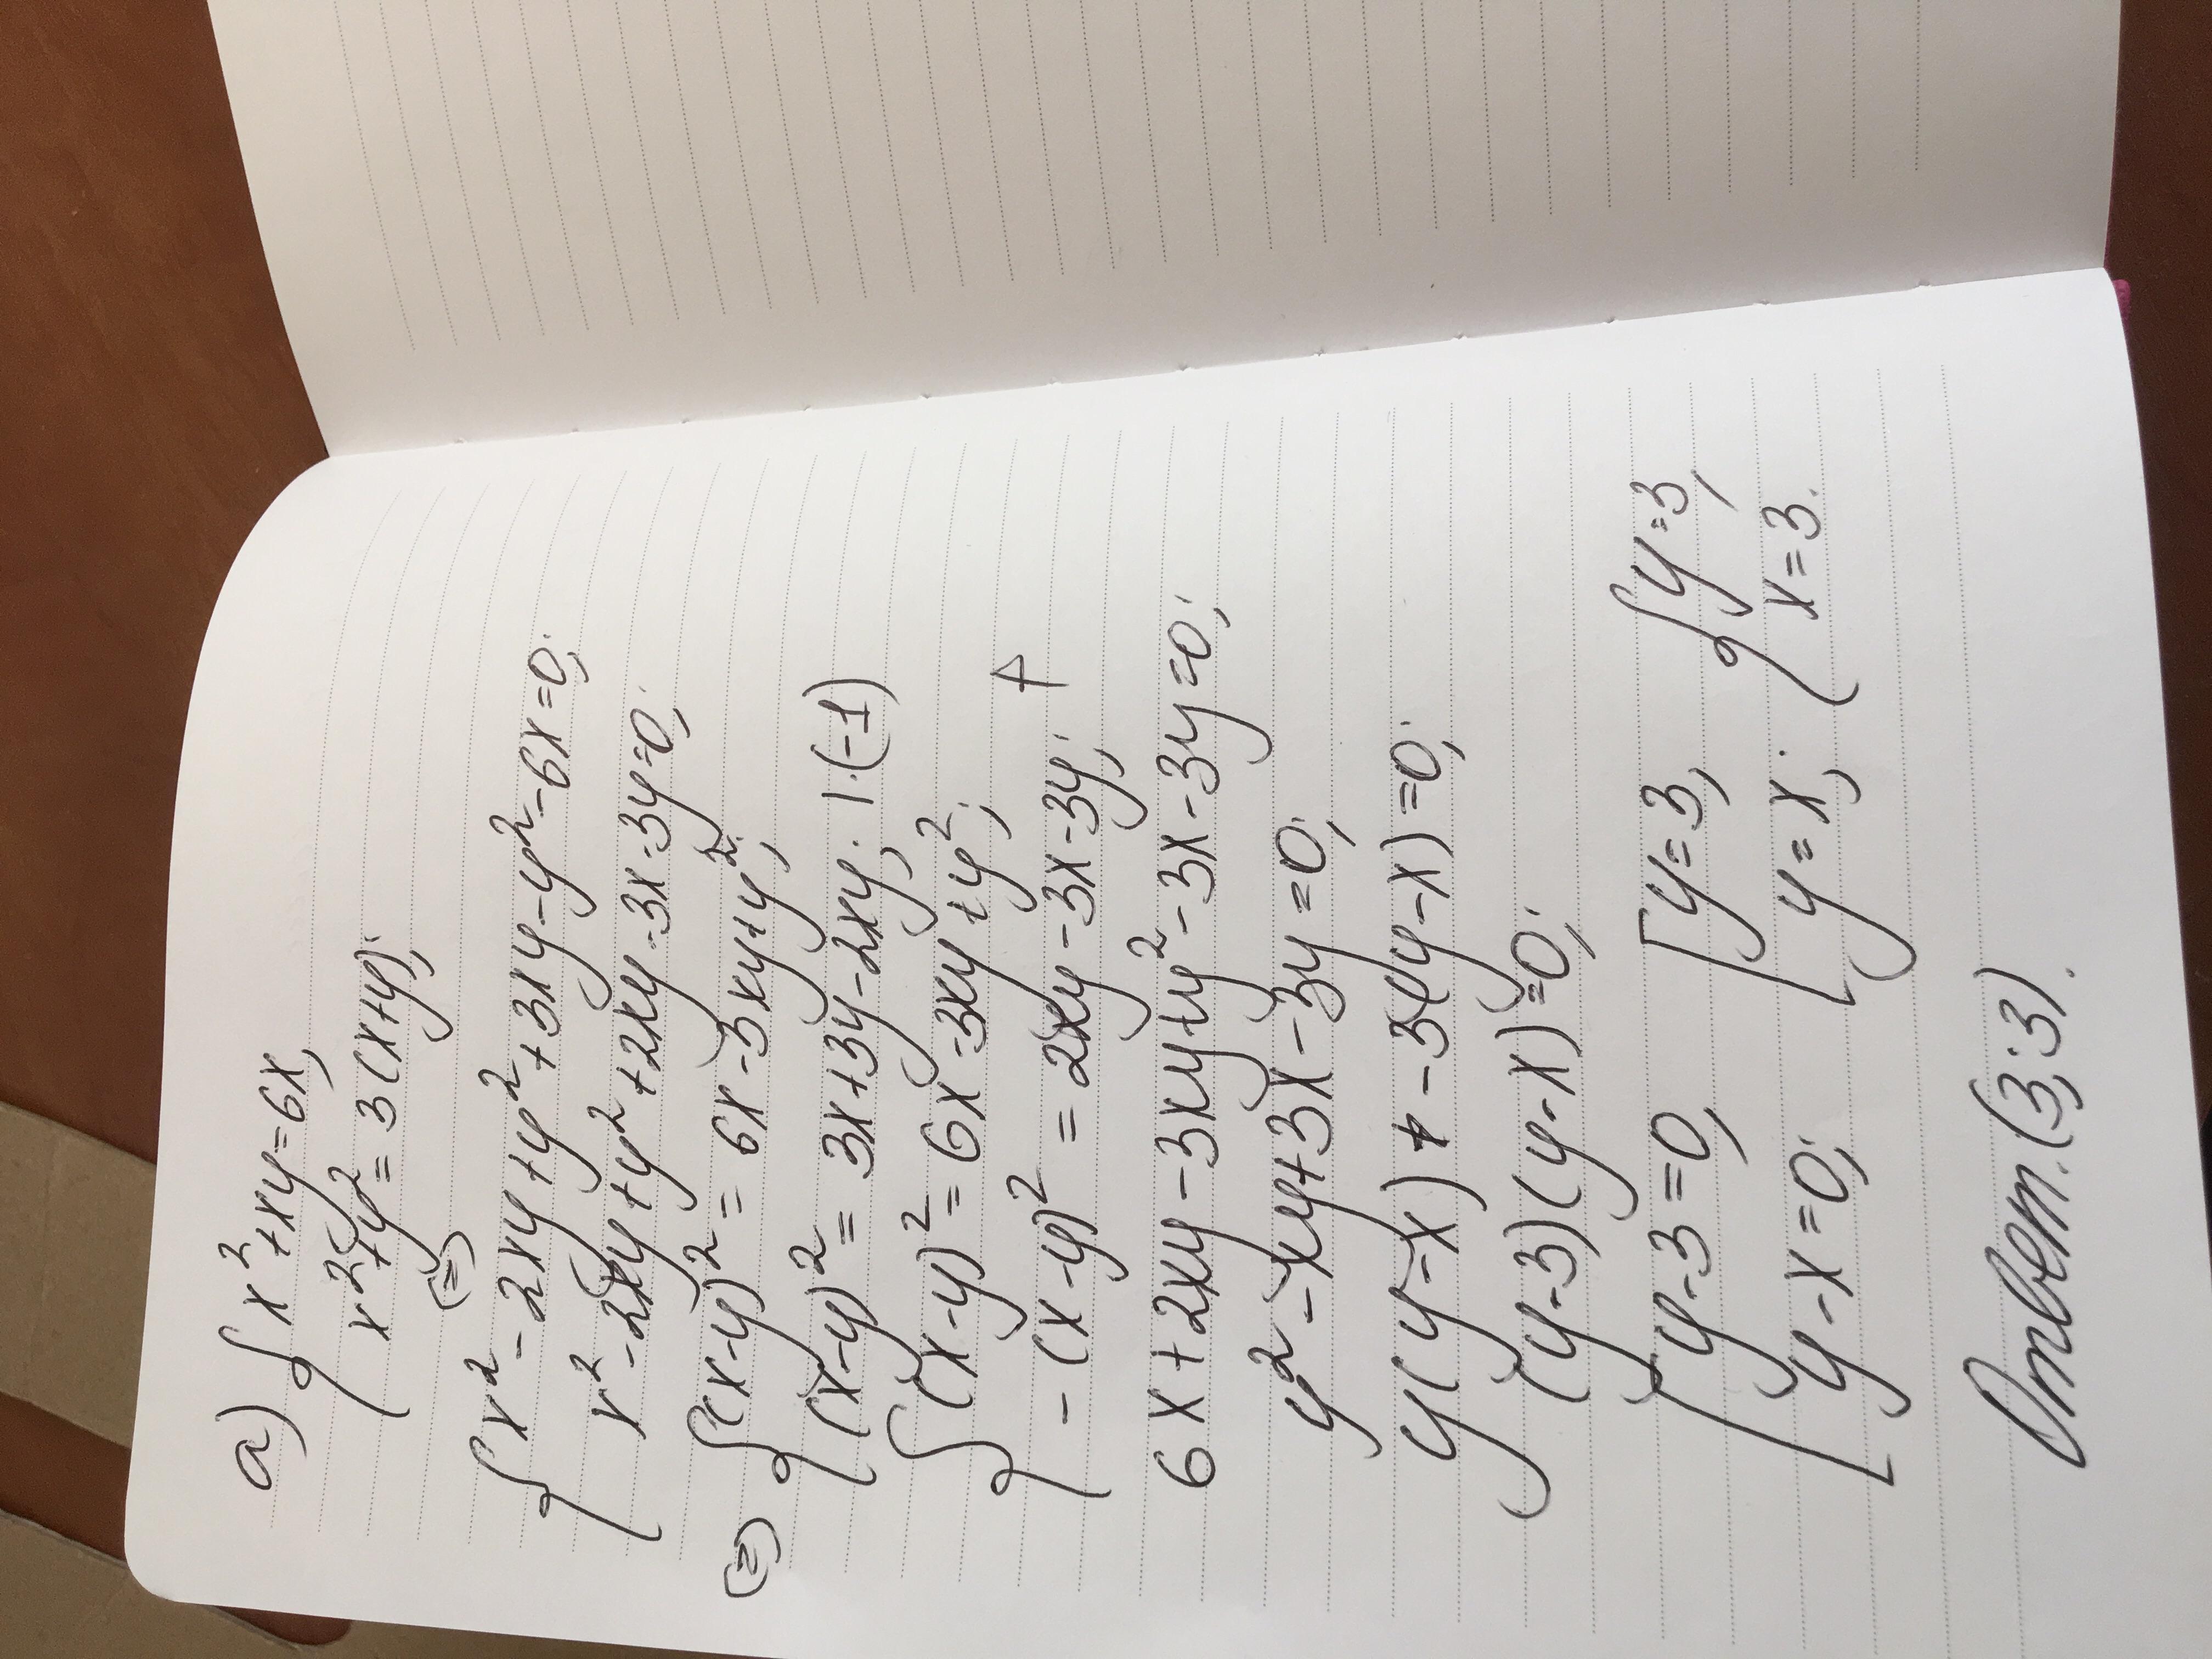 а) { x² + xy = 6x,
x² + y² = 3(x+y);
(=)
{ x² - 2xy + y² + 3xy - y² - 6x = 0;
x² - 2xy + y² + 2xy - 3x - 3y = 0;
(=) { (x-y)² = 6x - 3xy + y²;
(x-y)² = 3x + 3y - 2xy; | · (-1)
{ (x-y)² = 6x - 3xy + y²; +
-(x-y)² = 2xy - 3x - 3y;
6x + 2xy - 3xy + y² - 3x - 3y = 0;
y² - xy + 3x - 3y = 0;
y(y-x) - 3(y-x) = 0;
(y-3)(y-x) = 0;
[ y - 3 = 0, [ y = 3, { y = 3,
y - x = 0; y = x; x = 3.
Ответ. (3; 3).